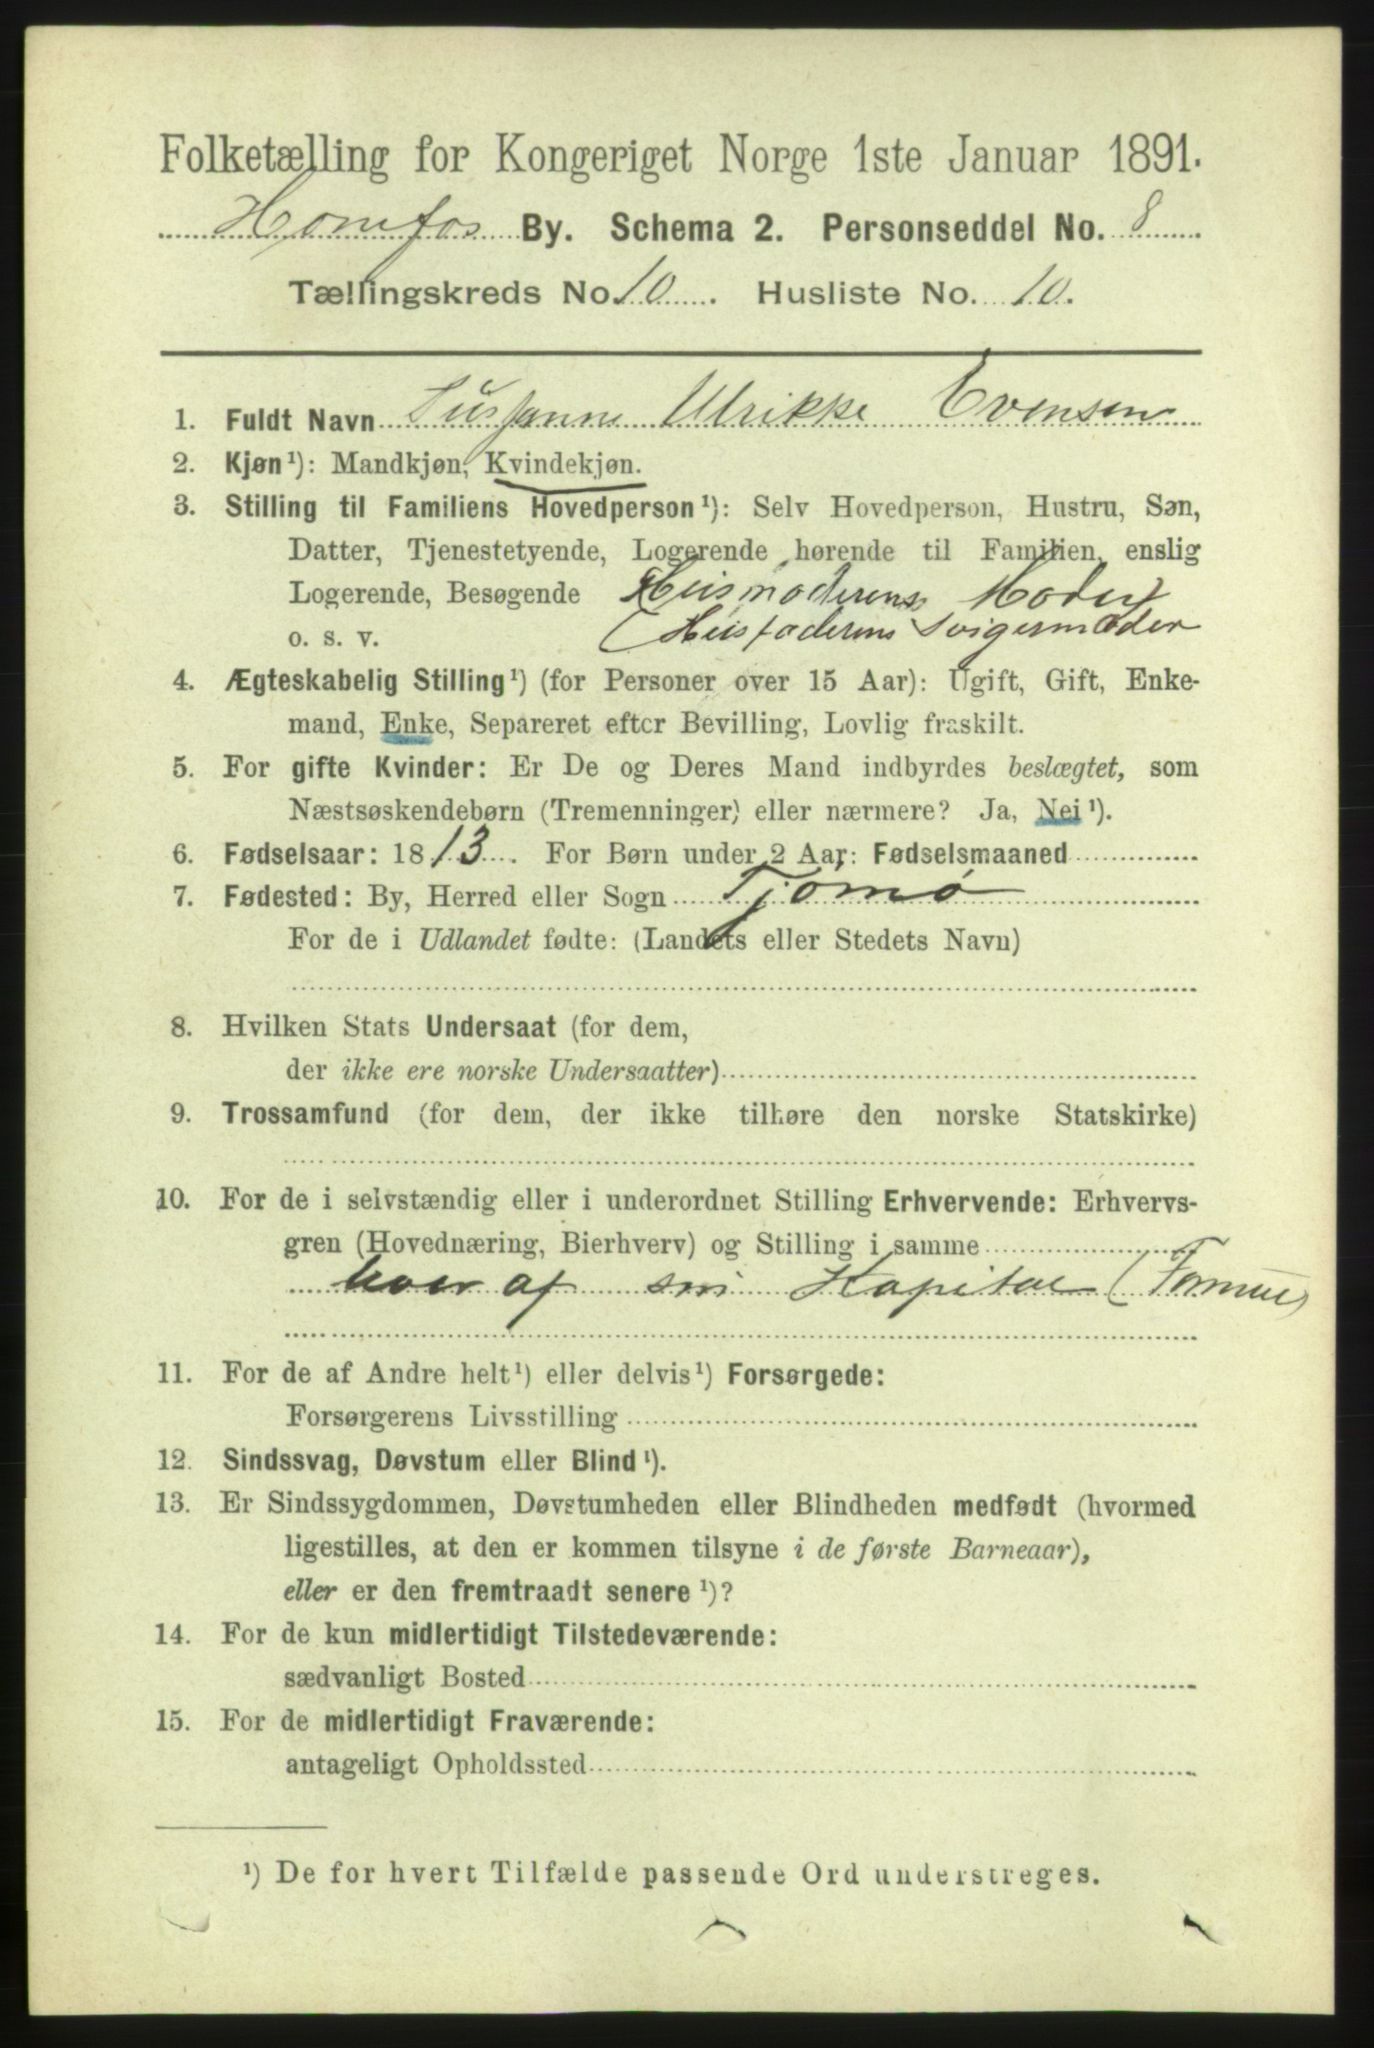 Folketælling for Kongeriget Norge 1ste Januar 1891.
Hønefos By. Schema 2. Personseddel No. 8
Tællingskreds No. 10. Husliste No. 10.
1. Fuldt Navn Susanne Ulrikke Evensen
2. Kjøn¹): Mandkjøn, Kvindekjøn.
3. Stilling til Familiens Hovedperson¹): Selv Hovedperson, Hustru, Søn,
Datter, Tjenestetyende, Logerende hørende til Familien, enslig
Logerende, Besøgende Husmoderens Moder
o. s. v. (Husfaderens Svigermoder
4. Ægteskabelig Stilling¹) (for Personer over 15 Aar): Ugift, Gift, Enke-
mand, Enke, Separeret efter Bevilling, Lovlig fraskilt.
5. For gifte Kvinder: Er De og Deres Mand indbyrdes beslægtet, som
Næstsøskendebørn (Tremenninger) eller nærmere? Ja, Nei¹).
6. Fødselsaar: 1813. For Børn under 2 Aar: Fødselsmaaned
7. Fødested: By, Herred eller Sogn Tjømø
For de i Udlandet fødte: (Landets eller Stedets Navn)
8. Hvilken Stats Undersaat (for dem,
der ikke ere norske Undersaatter)
9. Trossamfund (for dem, der ikke tilhøre den norske Statskirke)
10. For de i selvstændig eller i underordnet Stilling Erhvervende: Erhvervs-
gren (Hovednæring, Bierhverv) og Stilling i samme
lever af sin Kapital (Formue)
11. For de af Andre helt¹) eller delvis¹) Forsørgede:
Forsørgerens Livsstilling
12. Sindssvag, Døvstum eller Blind¹).
13. Er Sindssygdommen, Døvstumheden eller Blindheden medfødt (hvormed
ligestilles, at den er kommen tilsyne i de første Barneaar),
eller er den fremtraadt senere¹)?
14. For de kun midlertidigt Tilstedeværende:
sædvanligt Bosted
15. For de midlertidigt Fraværende:
antageligt Opholdssted
¹) De for hvert Tilfælde passende Ord understreges.